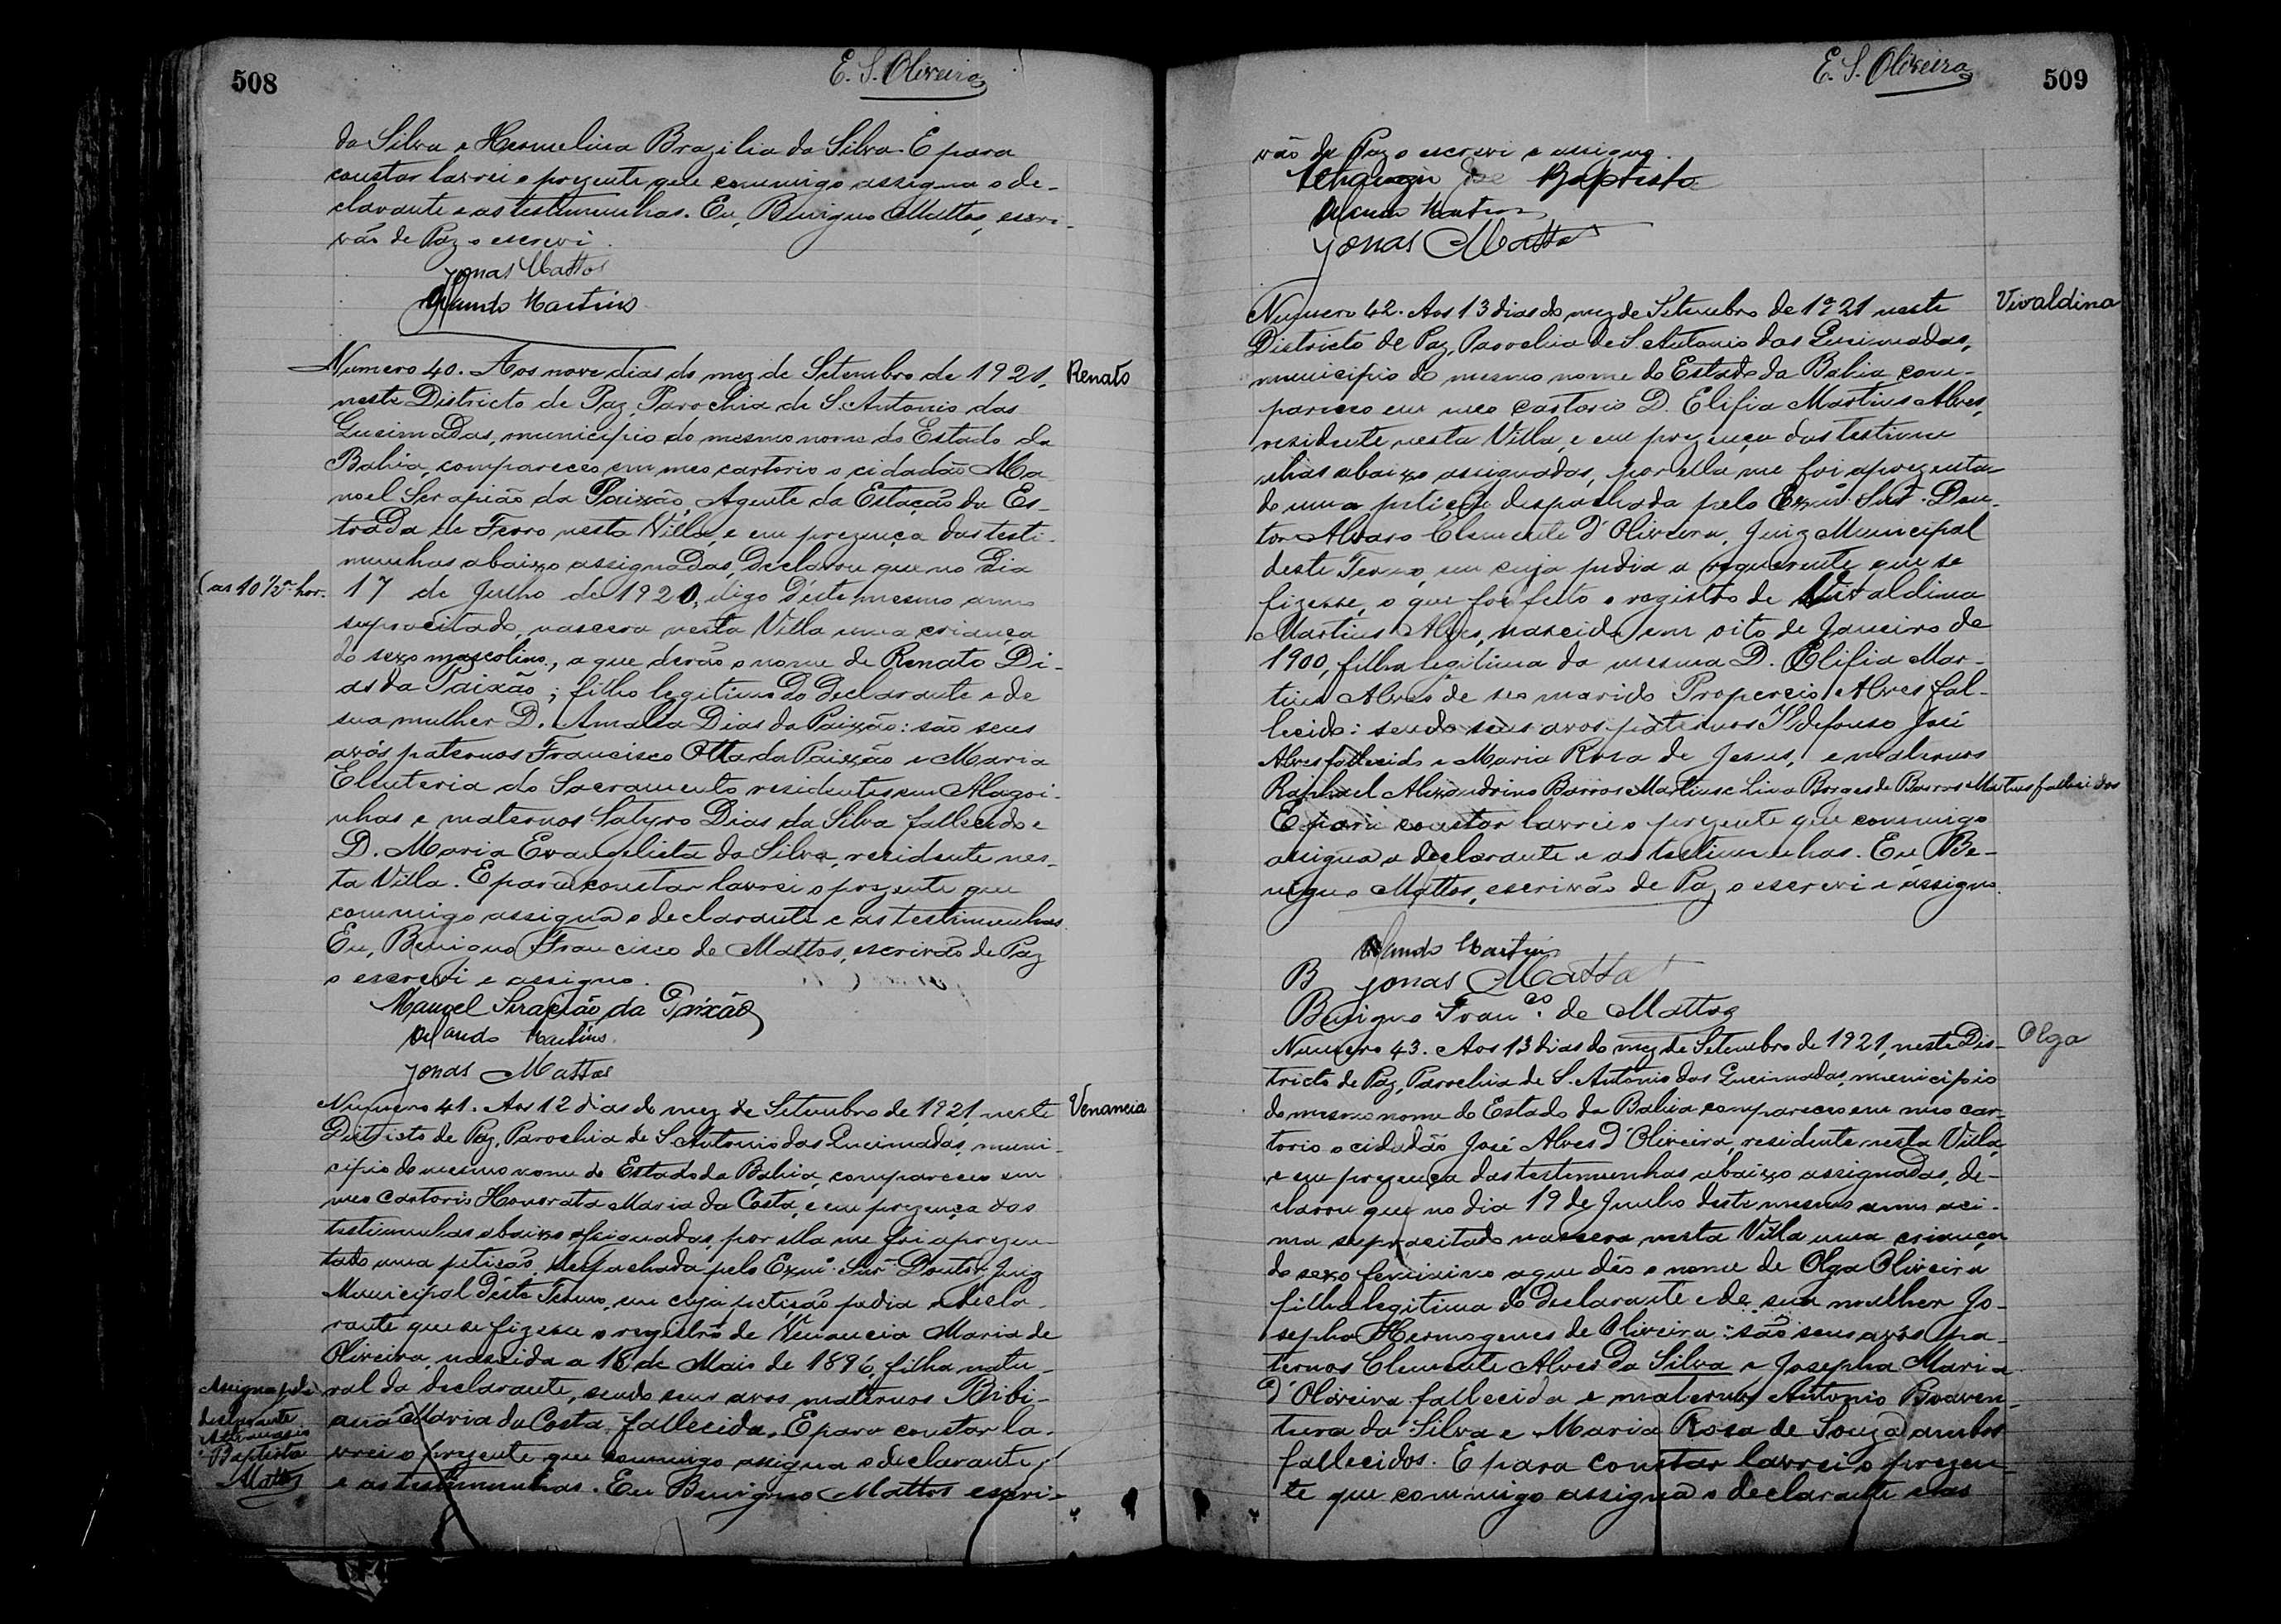 508
E. S. Oliveira
da Silva e Hermelina Brazilia da Silva. E para
constar lavrei o prezente que commigo assigna o de-
clarante e as testimunhas. Eu, Benigno Mattos, escri-
vão de Paz o escrevi.
Jonas Mattos
Orlando Martins
Numero 40. Aos nove dias do mez de Setembro de 1921,
Renato
neste Districto de Paz, Parochia de S. Antonio das
Queimadas, municipio do mesmo nome do Estado da
Bahia, compareceo em meo cartorio o cidadão Ma
noel Serapião da Paixão, Agente da Estação da Es-
trada de Ferro nesta Villa, e em prezença das testi-
munhas abaixo assignadas, declarou que no dia
(as 10 ½ hor.
17 de Julho de 1920, digo d'este mesmo anno
supracitado, nascera nesta Villa uma criança
do sexo mascolino, a que derão o nome de Renato Di-
as da Paixão; filho legitimo do declarante e de
sua mulher D. Amalia Dias da Paixão: são seus
avós paternos Francisco Otta da Paixão e Maria
Eleuteria do Sacramento residentes em Alagoi-
nhas e maternos Satyro Dias da Silva fallecido e
D. Maria Evangelista da Silva, residente nes-
ta Villa. E para constar lavrei o prezente que
commigo assigna o declarante e as testimunhas.
Eu, Benigno Francisco de Mattos, escrivão de Paz
o escrevi e assigno.
Manoel Serapião da Paixão
Orlando Martins
Jonas Mattos
Numero 41. Aos 12 dias do mez de Setembro de 1921, neste
Venancia
Districto de Paz, Parochia de S. Antonio das Queimadas, muni-
cipio do mesmo nome do Estado da Bahia, compareceu em
meo cartorio Honorata Maria da Costa, e em prezença das
testimunhas abaixo assignadas, por ella me foi aprezen-
tado uma petição despachada pelo Exmº. Snr. Doutor Juiz
Municipal d'este Termo, em cuja petição pedia a decla-
rante que se fizesse o registro de Venancia Maria de
Oliveira, nascida a 18 de Maio de 1896, filha natu-
ral da declarante, sendo seus avos maternos Bibi-
ana Maria da Costa, fallecida. E para constar la-
vrei o prezente que commigo assigna o declarante
e as testimunhas. Eu Benigno Mattos escri-
Assigna pela
declarante
Baptista
Mattos
E. S. Oliveira
509
vão de Paz o escrevi e assigno.
Baptista
Orlando Martins
Jonas Mattos
Numero 42. Aos 13 dias do mez de Setembro de 1921 neste
Vivaldina
Districto de Paz, Parochia de S. Antonio das Queimadas,
municipio do mesmo nome do Estado da Bahia com-
pareceo em meo cartorio D. Elifia Martins Alves,
residente nesta Villa, e em prezença das testimu
nhas abaixo assignadas, por ella me foi aprezenta
do uma petição despachada pelo Exmº. Snr. Dou-
tor Alvaro Clemente d'Oliveira, Juiz Municipal
deste Termo, em cuja pedia a requerente que se
fizesse, o que foi feito o registro de Vivaldina
Martins Alves, nascida em oito de Janeiro de
1900, filha legitima da mesma D. Elifia Mar-
tins Alves de seo marido Propercio Alves fal-
lecido: sendo seus avos paternos Ildefonso José
Alves fallecido e Maria Rosa de Jesus, e maternos
Raphael Alixandrino Barros Martins e Lina Borges de Barros Martins fallecidos
E para constar lavrei o prezente que commigo
assigna a declarante e as testimunhas. Eu Be-
nigno Mattos, escrivão de Paz o escrevi e assigno.
Orlando Martins
B Jonas Mattos
Benigno Franco. de Mattos
Numero 43. Aos 13 dias do mez de Setembro de 1921, neste Dis-
Olga
tricto de Paz, Parochia de S. Antonio das Queimadas, municipio
do mesmo nome do Estado da Bahia compareceo em meo car-
torio o cidadão José Alves d'Oliveira, residente nesta Villa,
e em prezença das testemunhas abaixo assignadas, de-
clarou que no dia 19 de Junho deste mesmo anno aci-
ma supracitado nascera nesta Villa uma criança
do sexo feminino a que deo o nome de Olga Oliveira
filha legitima do declarante e de sua mulher Jo-
sepha Hermogenes de Oliveira: são seus avós pa-
ternos Clemente Alves da Silva e Josepha Maria
d'Oliveira fallecida e maternos Antonio Boaven-
tura da Silva e Maria Rosa de Souza ambos
fallecidos. E para constar lavrei o prezen-
te que commigo assigna o declarante e as